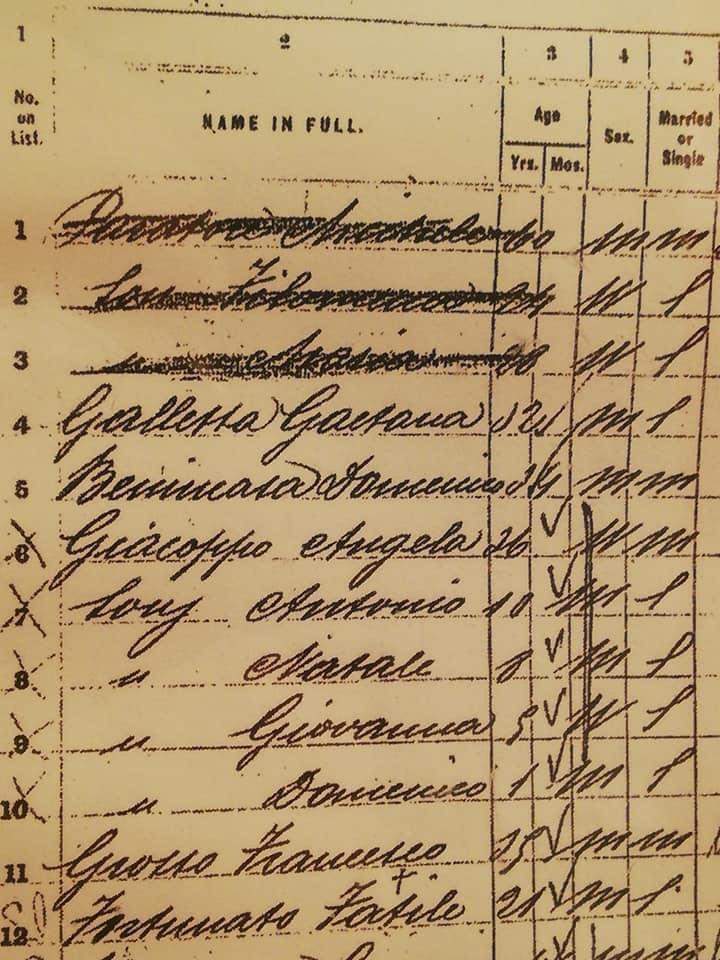 1 2 3 4 5
No. on List. NAME IN FULL. Age Yrs. Mos. Sex. Married or Single
1 60 m m
2 Filomena W S
3 " W S
4 Galletta Gaetana 32 m S
5 Domenico 34 m m
6 Giacoppo Angela 36 W m
7 Antonio 10 m S
8 " Natale 8 m S
9 " Giovanna 5 W S
10 " Domenico 1 m S
11 Grosso Francesco 35 m m
12 Fortunato 21 m S